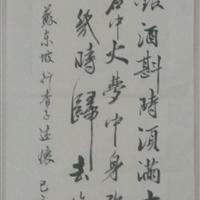 銀酒斟時須滿十
石中火夢中身雖
幾時歸去作
蘇東坡行香子述懷 己